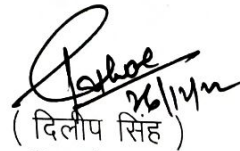 26/12/22
( दिलीप सिंह )